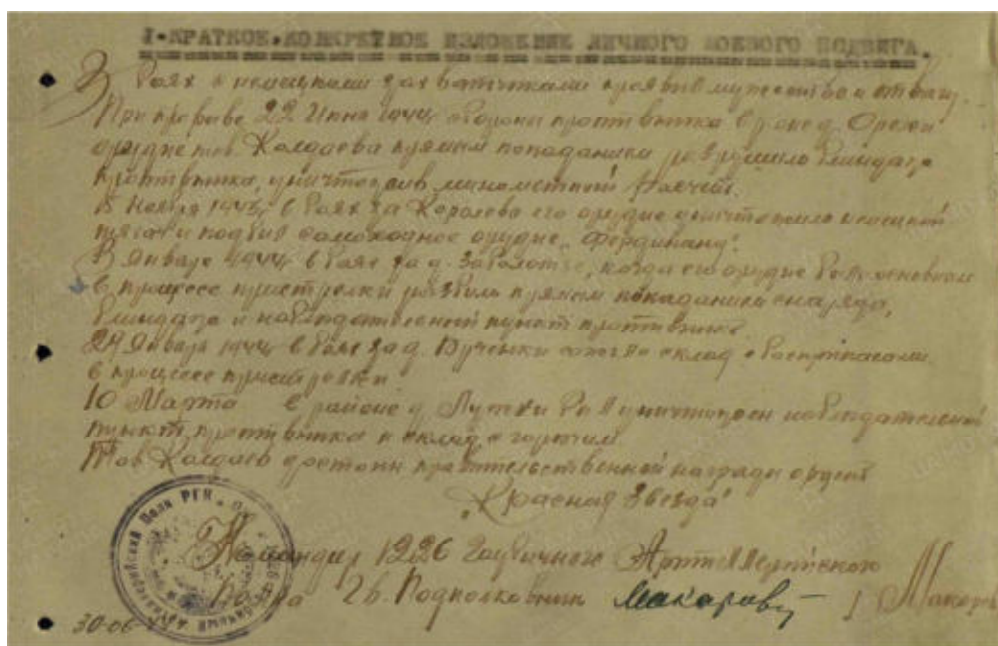 I. КРАТКОЕ, КОНКРЕТНОЕ ИЗЛОЖЕНИЕ ЛИЧНОГО БОЕВОГО ПОДВИГА.
В боях с немецкими захватчиками проявил мужество и отвагу.
При прорыве 22 Июня 1944 обороны противника в р-оне д. Орехи
орудие тов. Колдаева прямым попаданием разрушило блиндаж
противника, уничтожив минометный расчет.
15 Ноября 1943 в боях за Королево его орудие уничтожило
тягач и подбив самоходное орудие "Фердинанд".
В Январе 1944 в бою за д. Заболотье, когда его орудие было основном
в процессе пристрелки разбиль прямым попаданием снаряда,
блиндаж и наблюдательный пункт противника
29 Января 1944 в бою за д. Бученки склад с боеприпасами
в процессе пристрелки
10 Марта в районе д. Лутки был уничтожен наблюдательный
пункт противника и склад с горючим.
Тов Колдаев достоин правительственной награды орден
"Красная Звезда"
Командир 1226 Гаубичного Артиллерийского
Полка Гв. Подполковник Макаров
30-06